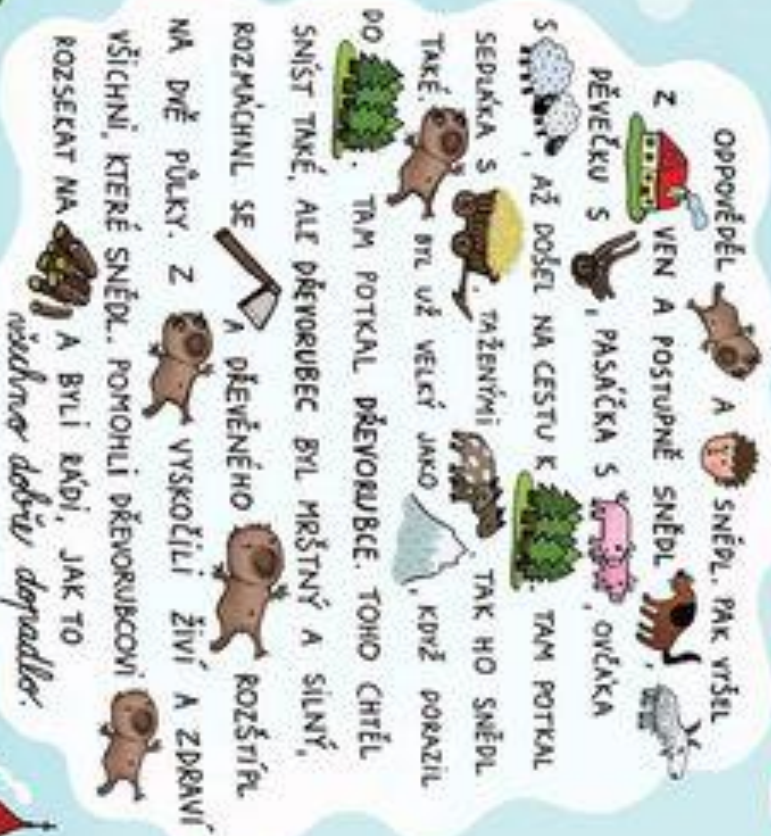 ODPOVĚDĚL A SNĚDL. PAK VYŠEL
Z VEN A POSTUPNĚ SNĚDL ,
DĚVEČKU S , PASÁČKA S , OVČÁKA
S , AŽ DOŠEL NA CESTU K . TAM POTKAL
SEDLÁKA S , TAŽENÝMI TAK HO SNĚDL
TAKÉ. BYL UŽ VELKÝ JAKO , KDYŽ DORAZIL
DO . TAM POTKAL DŘEVORUBCE. TOHO CHTĚL
SNÍST TAKÉ, ALE DŘEVORUBEC BYL MRŠTNÝ A SILNÝ,
ROZMÁCHNL SE A DŘEVĚNÉHO ROZŠTÍPL
NA DVĚ PŮLKY. Z VYSKOČILI ŽIVÍ A ZDRAVÍ
VŠICHNI, KTERÉ SNĚDL. POMOHLI DŘEVORUBCOVI
ROZSEKAT NA A BYLI RÁDI, JAK TO
všechno dobře dopadlo.